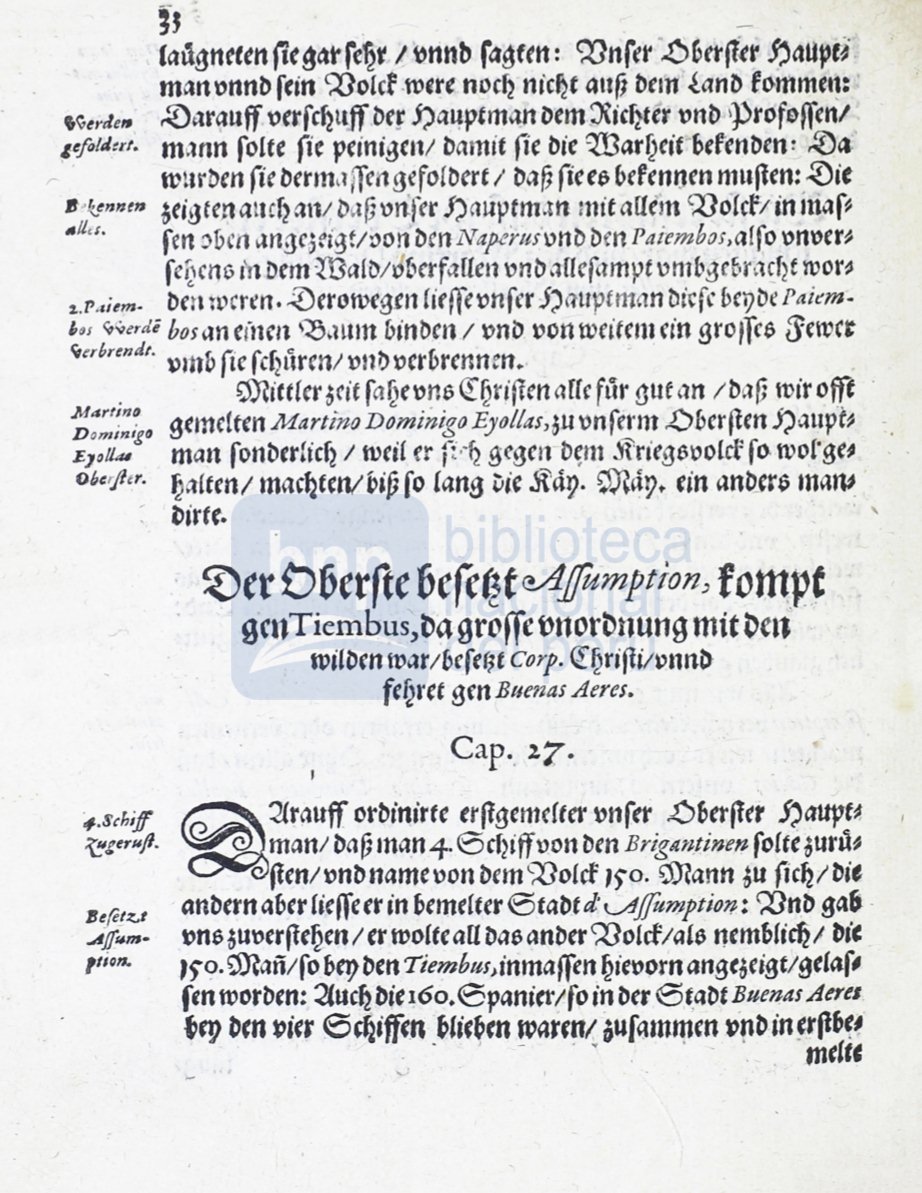 33
laügneten sie gar sehr / vnnd sagten: Vnser Oberster Haupt⸗
man vnnd sein Volck were noch nicht auß dem Land kommen:
Darauff verschuff der Hauptman dem Richter vnd Profossen/
Werden
gefoldert.
mann solte sie peinigen/ damit sie die Warheit bekenden: Da
wurden sie dermassen gefoldert / daß sie es bekennen musten: Die
Bekennen
alles.
zeigten auch an/ daß vnser Hauptman mit allem Volck/ in mas⸗
sen oben angezeigt/ von den Naperus vnd den Paiembos, also vnver⸗
sehens in dem Wald/ vberfallen vnd allesampt vmbgebracht wor⸗
2. Paiem-
bos Werdē
Verbrendt.
den weren. Derowegen liesse vnser Hauptman diese beyde Paiem-
bos an einen Baum binden / vnd von weitem ein grosses Fewer
vmb sie schüren/ vnd verbrennen.
Mittler zeit sahe vns Christen alle für gut an / daß wir offt
Martino
Dominigo
Eyollas
Oberster.
gemelten Martino Dominigo Eyollas, zu vnserm Obersten Haupt⸗
man sonderlich / weil er sich gegen dem Kriegsvolck so wol ge⸗
halten/ machten/ biß so lang die Käy. Mäy. ein anders man⸗
dirte.
bnp biblioteca nacional del perú
Der Oberste besetzt Assumption, kompt
gen Tiembus, da grosse vnordnung mit den
wilden war/ besetzt Corp. Christi/ vnnd
fehret gen Buenas Aeres.
Cap. 27.
4. Schiff
Zugerust.
DArauff ordinirte erstgemelter vnser Oberster Haupt⸗
man/ daß man 4. Schiff von den Brigantinen solte zurü⸗
sten/ vnd name von dem Volck 150. Mann zu sich/ die
andern aber liesse er in bemelter Stadt d' Assumption: Vnd gab
Besetzt
Assum-
ption.
vns zuverstehen / er wolte all das ander Volck/ als nemblich/ die
150. Mañ/ so bey den Tiembus, inmassen hievorn angezeigt/ gelas⸗
sen worden: Auch die 160. Spanier/ so in der Stadt Buenas Aeres
bey den vier Schiffen blieben waren/ zusammen vnd in erstbe⸗
melte